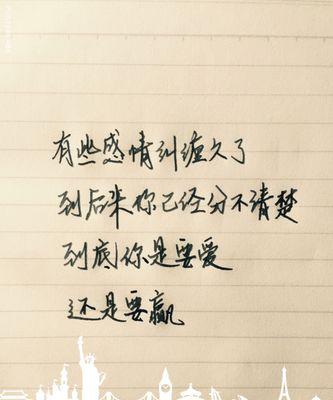 有些感情纠缠久了
到后来你已经分不清楚
到底你是要爱
还是要赢